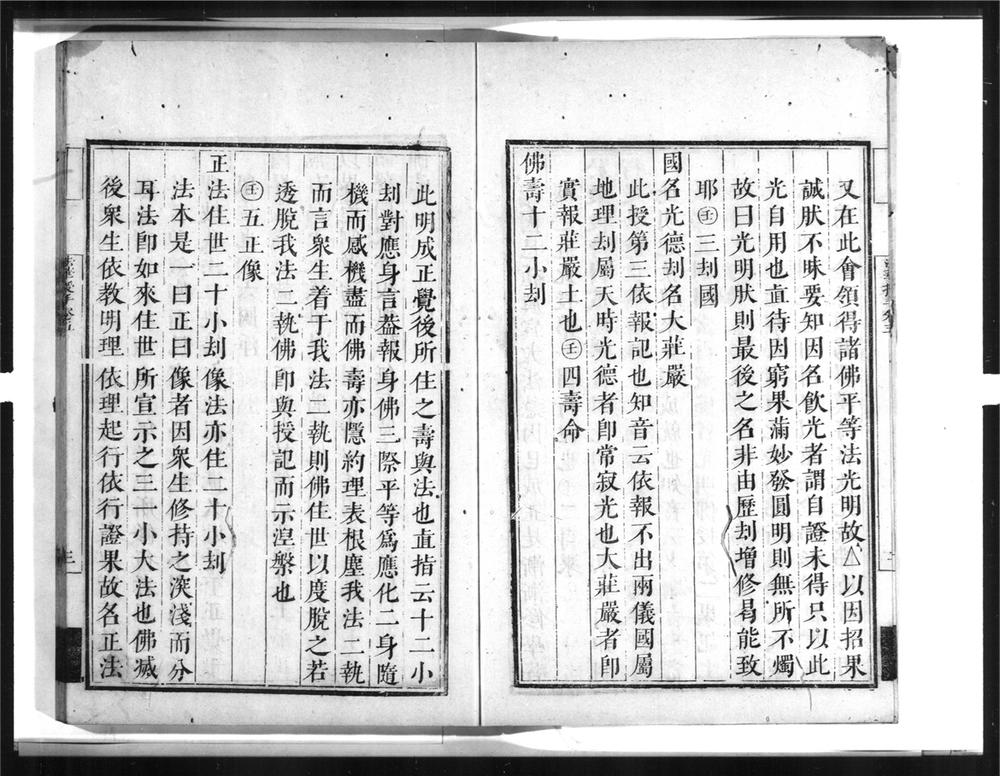 又在此會領得諸佛平等法光明故△以因招果
誠肰不昧要知因名飲光者謂自證未得只以此
光自用也直待因窮果滿妙發圓明則無所不燭
故曰光明肰則最後之名非由歷刼增修曷能致
耶㊣三刼國
國名光德刼名大莊嚴
此授第三依報記也知音云依報不出兩儀國屬
地理刼屬天時光德者卽常寂光也大莊嚴者卽
實報莊嚴土也㊣四壽命
佛壽十二小刼
此明成正覺後所住之壽與法也直指云十二小
刼對應身言葢報身佛三際平等爲應化二身隨
機而感機盡而佛壽亦隱約理表根塵我法二執
而言衆生着于我法二執則佛住世以度脫之若
透脫我法二執佛卽與授記而示涅槃也
五正像
正法住世二十小刼像法亦住二十小刼
法本是一曰正曰像者因衆生修持之深淺而分
耳法卽如來住世所宣示之三卌小大法也佛滅
後衆生依教明理依理起行依行證果故名正法